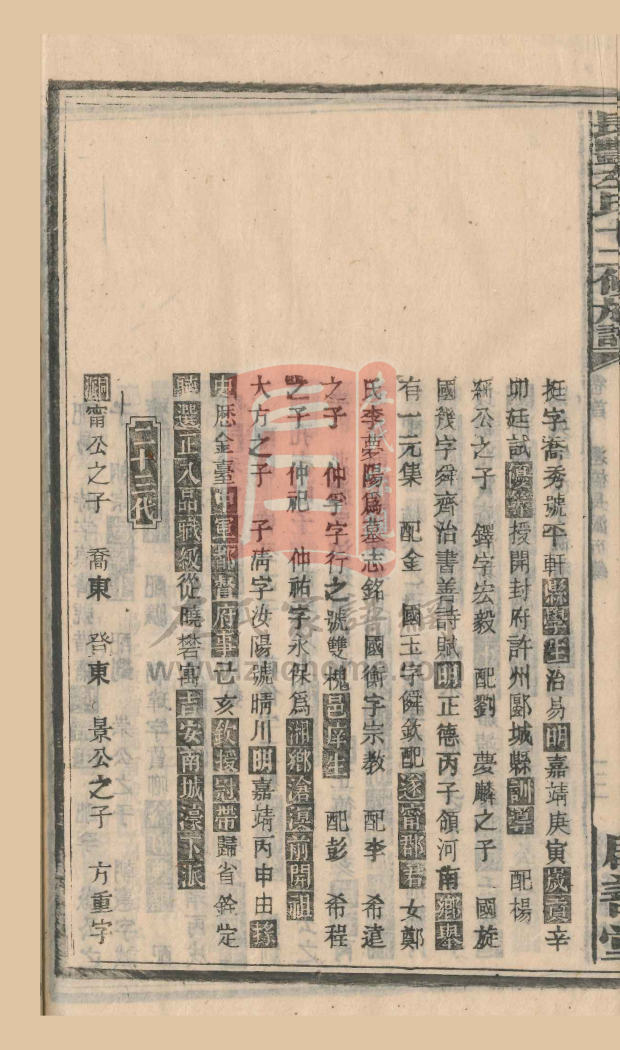 長豐左氏十二修族譜
卷首
挺字喬秀號平軒縣學生治易明嘉靖庚寅歲貢辛
卯廷試優等授開封府許州郾城縣訓導 配楊
公之子 鐸字宏毅 配劉 夢麟之子 國旋
國幾字舜齊治書善詩賦明正德丙子領河南鄉舉
有一元集 配金 國玉字舜欽配遂甯郡君 女鄭
氏李夢陽爲墓志銘 國衡字宗教 配李 希遠
之子 仲孚字行之號雙槐邑庠生 配彭 希程
之子 仲祀 仲祐字永保爲湘鄉滄浪前開祖
大方之子 子清字汝陽號晴川明嘉靖丙申由掾
史歷金臺中軍都督府事己亥欽授冠帶歸省銓定
聽選正八品職級從曉礬寓吉安南城濠下派
二十三代
甯公之子 喬東 登東 景公之子 方重字